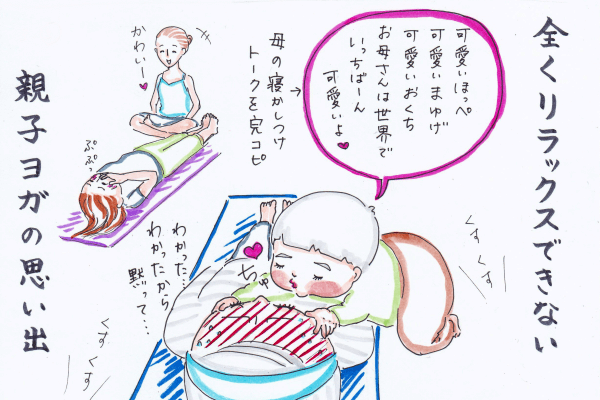 全くリラックスできない
可愛いほっぺ
可愛いまゆげ
可愛いおくち
お母さんは世界で
いっちばーん
可愛いよ♥
↑
母の寝かしつけ
トークを完コピ
かわいー♥
ぷぷっ
くすくす
ちゅ
わかった…
わかったから
黙って…
くすくす
親子ヨガの思い出